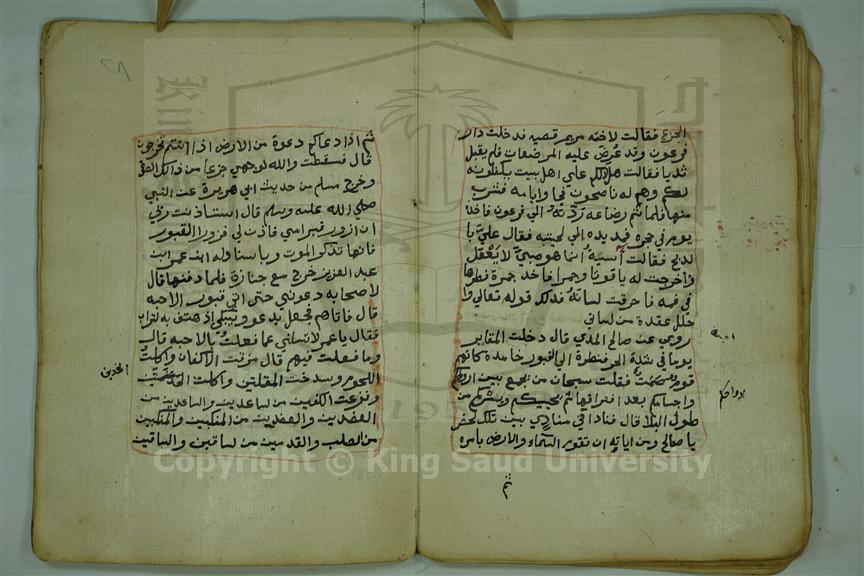 الجزع فقالت لاخته مريم قصيه فدخلت دار
فرعون وقد عُرض عليه المرضعات فلم يقبل
ثديا فقالت هل ادلكم علي اهل بيت يكفلونه
لكم وهم له ناصحون فجا وا بامه فشرب
منها فلما تم رضاعه ردّته الي فرعون فاخذ
يوم في حجره فمد يده الي لحيته فقال عليّ با
لذبح فقالت آسية انما هو صبيّ لا يَعْقل
واخرجت له ياقوتا وجمرا فاخذ جمرة فطرحها
في فمه فاحرقت لسانهُ فذلك قوله تعالي وا
حلل عقدة من لساني
روي عن صالح المدي قال دخلت المقابر
يوما في شدة الحر فنظرة الي القبور خامدة كانهم
قوم فقلت سبحان من يجمع بين
واجسادكم بعد افتراقها ثم يحييكم وينشركم من
طول البلا قال فنادا في منادي بين تلك الحفر
يا صالح ومن اياته ان تقوم السّماء والارض بامره
ارواحكم
ثم
ثم اذا دعاكم دعوة من الارض اذا انتم تخرجون
قال فسقطت والله لوجهي جزعا من ذالك
وخرج مسلم من حديث ابي هريرة عن النبي
صلي الله عليه وسلم قال استاذنت ربي
ان ازور قبر امي فاذن لي فزوروا القبور
فانها تذكر الموت وباسناد له ان عمر ابن
عبد العزيز خرج مع جنازة فلما دفنها قال
لاصحابه دعوني حتى اتي قبور الاحبه
قال فاتاهم فجعل يدعو ويبكي اذ هتف به التراب
فقال يا عمر لا تسئلني عما فعلتُ بالاحبه قال
وما فعلت فيهم قال مزقت الاكفان واكلت
اللحوم وسدخت المقلتين واكلت الحدقتين
ونزعت الكفين من الساعدين والساعدين من
العضدين والعضدين من المنكبين والمنكبين
من الصلب والقدمين من الساقين والساقين
Copyright © King Saud University